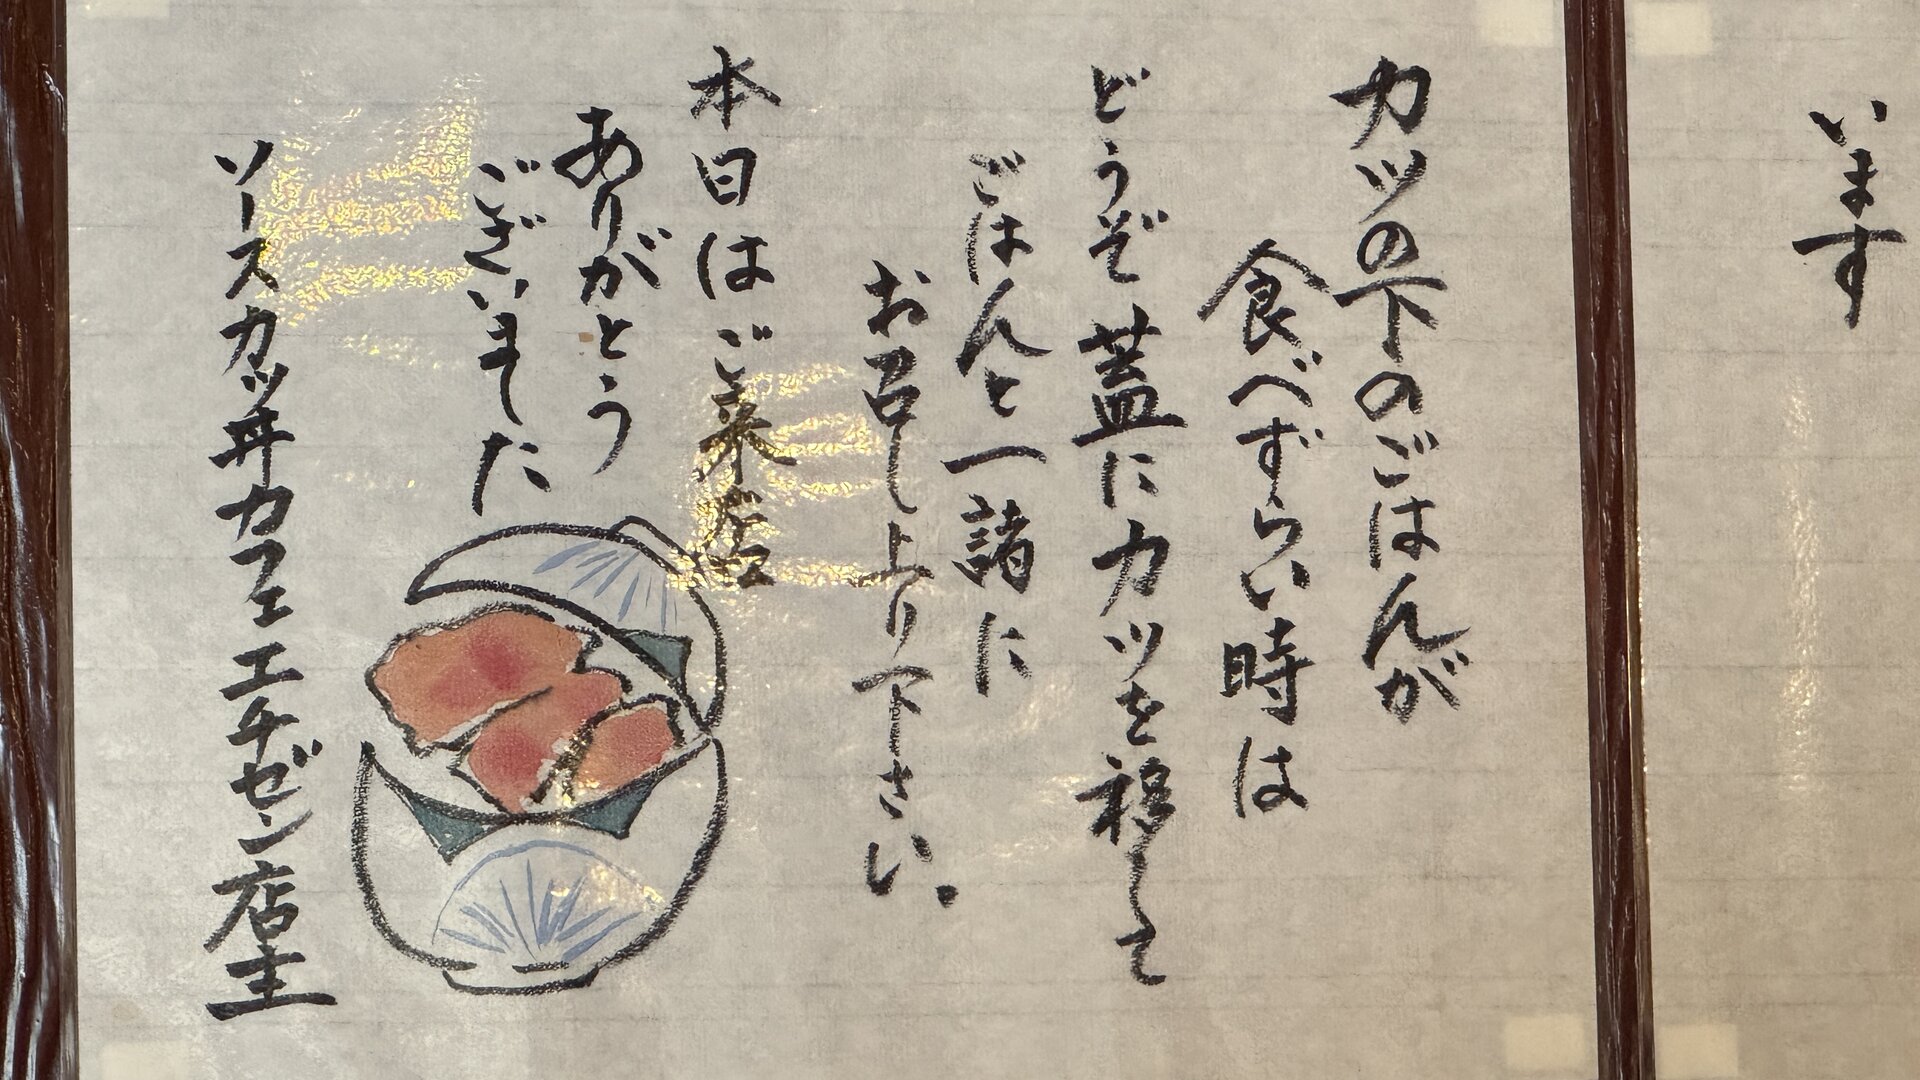 います
カツの下のごはんが
食べずらい時は
どうぞ蓋にカツを移して
ごはんと一諸に
お召し上り下さい。
本日はご来店
ありがとう
ございました
ソースカツ丼カフェエチゼン店主